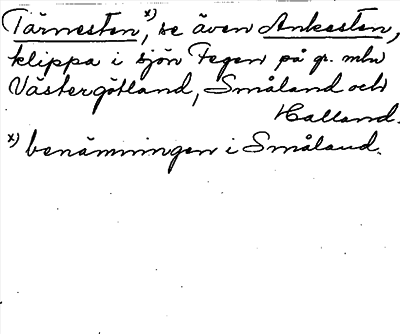 Tärnesten,ˣ⁾ se även Ankesten,
klippa i sjön Fegen på gr. mln
Västergötland, Småland och
Halland.
ˣ⁾ benämningen i Småland.